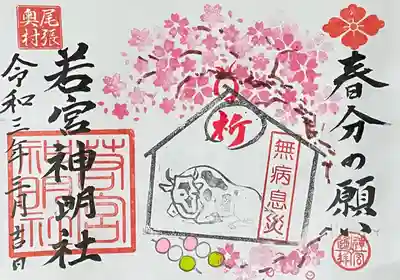 春分の願い
祈
無病息災
尾張
奥村
若宮神明社
令和三年三月吉日